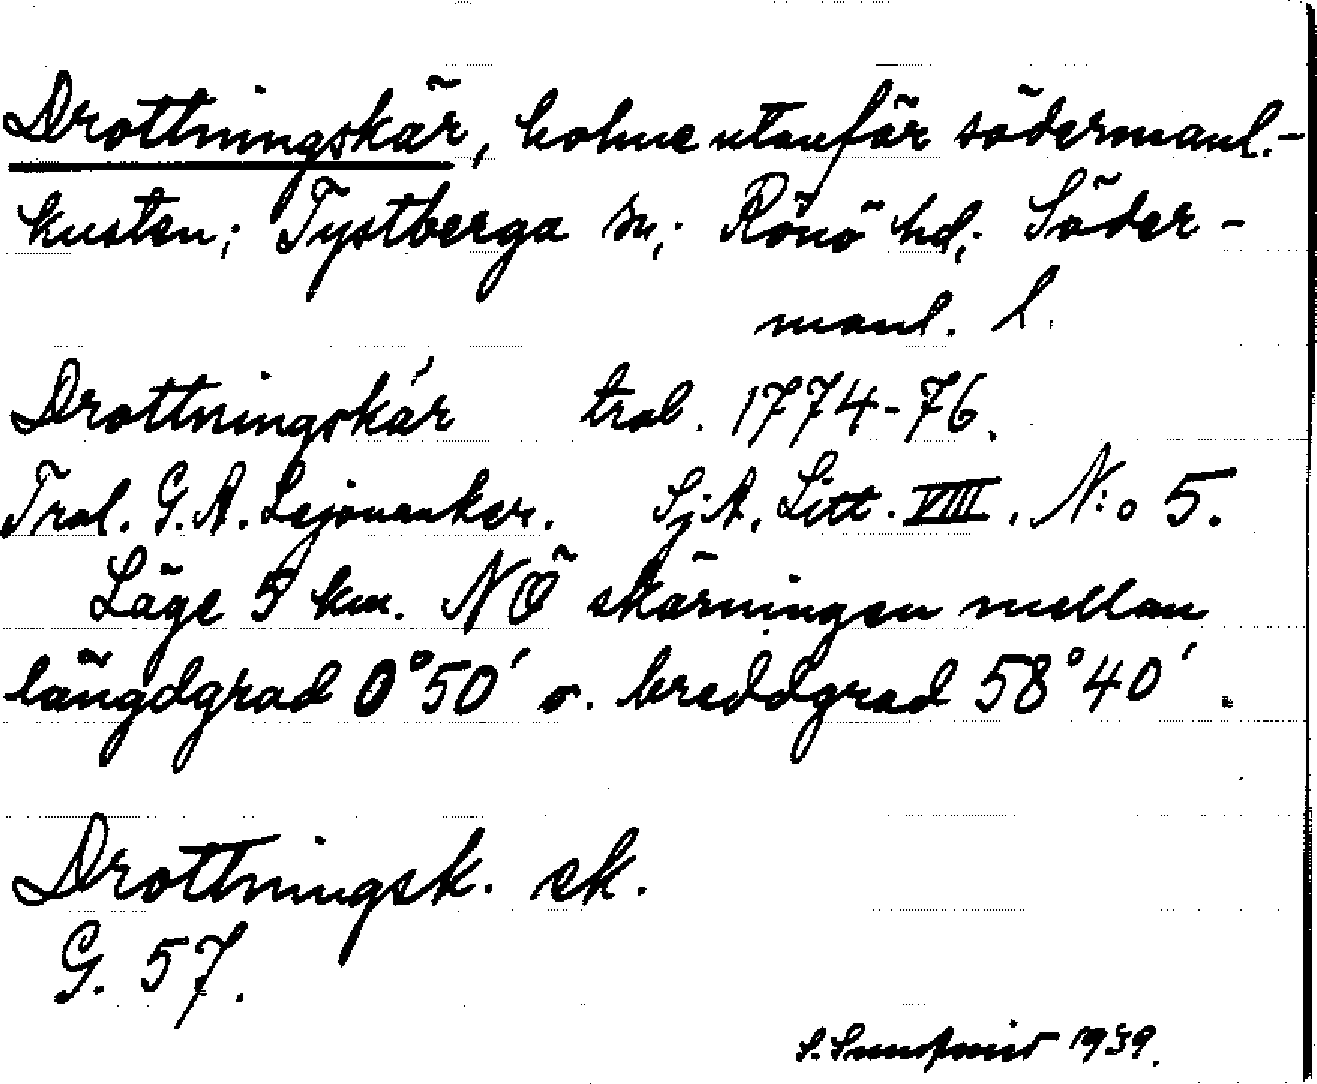 Drottningskär, holme utanför södermanl.-
kusten; Tystberga sn; Rönö hd; Söder-
manl. l.
Drottningskär trol. 1774-76.
Trol. G. A. Lejonanker. SjA. Litt. VIII. N:o 5.
Läge 5 km. NÖ skärningen mellan
längdgrad 0°50' o. breddgrad 58°40'.
Drottningsk. ek.
G. 57.
1939.